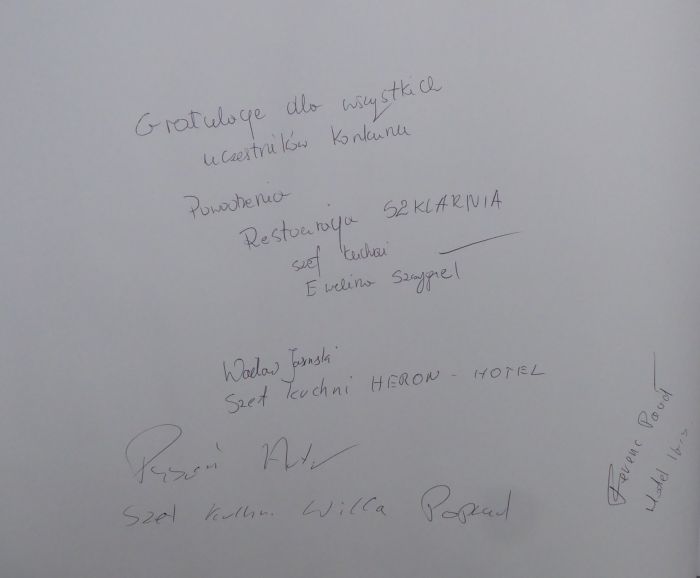 Gratuluje dla wszystkich
uczestników konkursu
Powodzenia
Restauracja SZKLARNIA
szef kuchni
Ewelina
Wacław
Szef kuchni HERON - HOTEL
Szef kuchni Willa Poprad
Ferenc
Hotel Ibis